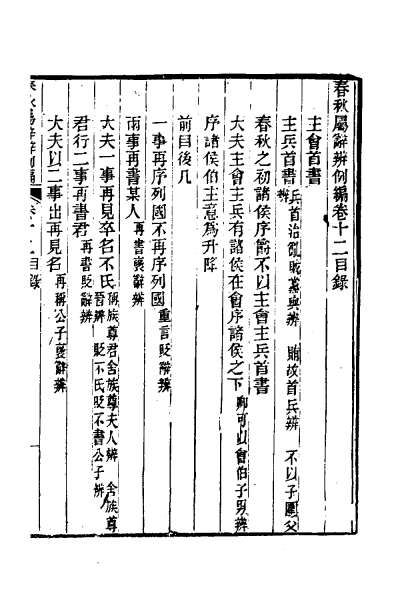 春秋屬辭辨例編卷十二目錄
主會首書
主兵首書 兵首治亂賊黨與辨 賄故首兵辨 不以子圍父辨
春秋之初諸侯序爵不以主會主兵首書
大夫主會主兵有諸侯在會序諸侯之下 卿可以會伯子男辨
序諸侯伯主意為升降
前目後凡
一事再序列國不再序列國 重言貶辭辨
兩事再書某人 再書褒辭辨
大夫一事再見卒名不氏 稱族尊君舍族尊夫人辨 舍族尊晉辨 貶不氏貶不書公子辨
君行二事再書君 再書貶辭辨
大夫以二事出再見名 再稱公子褒辭辨